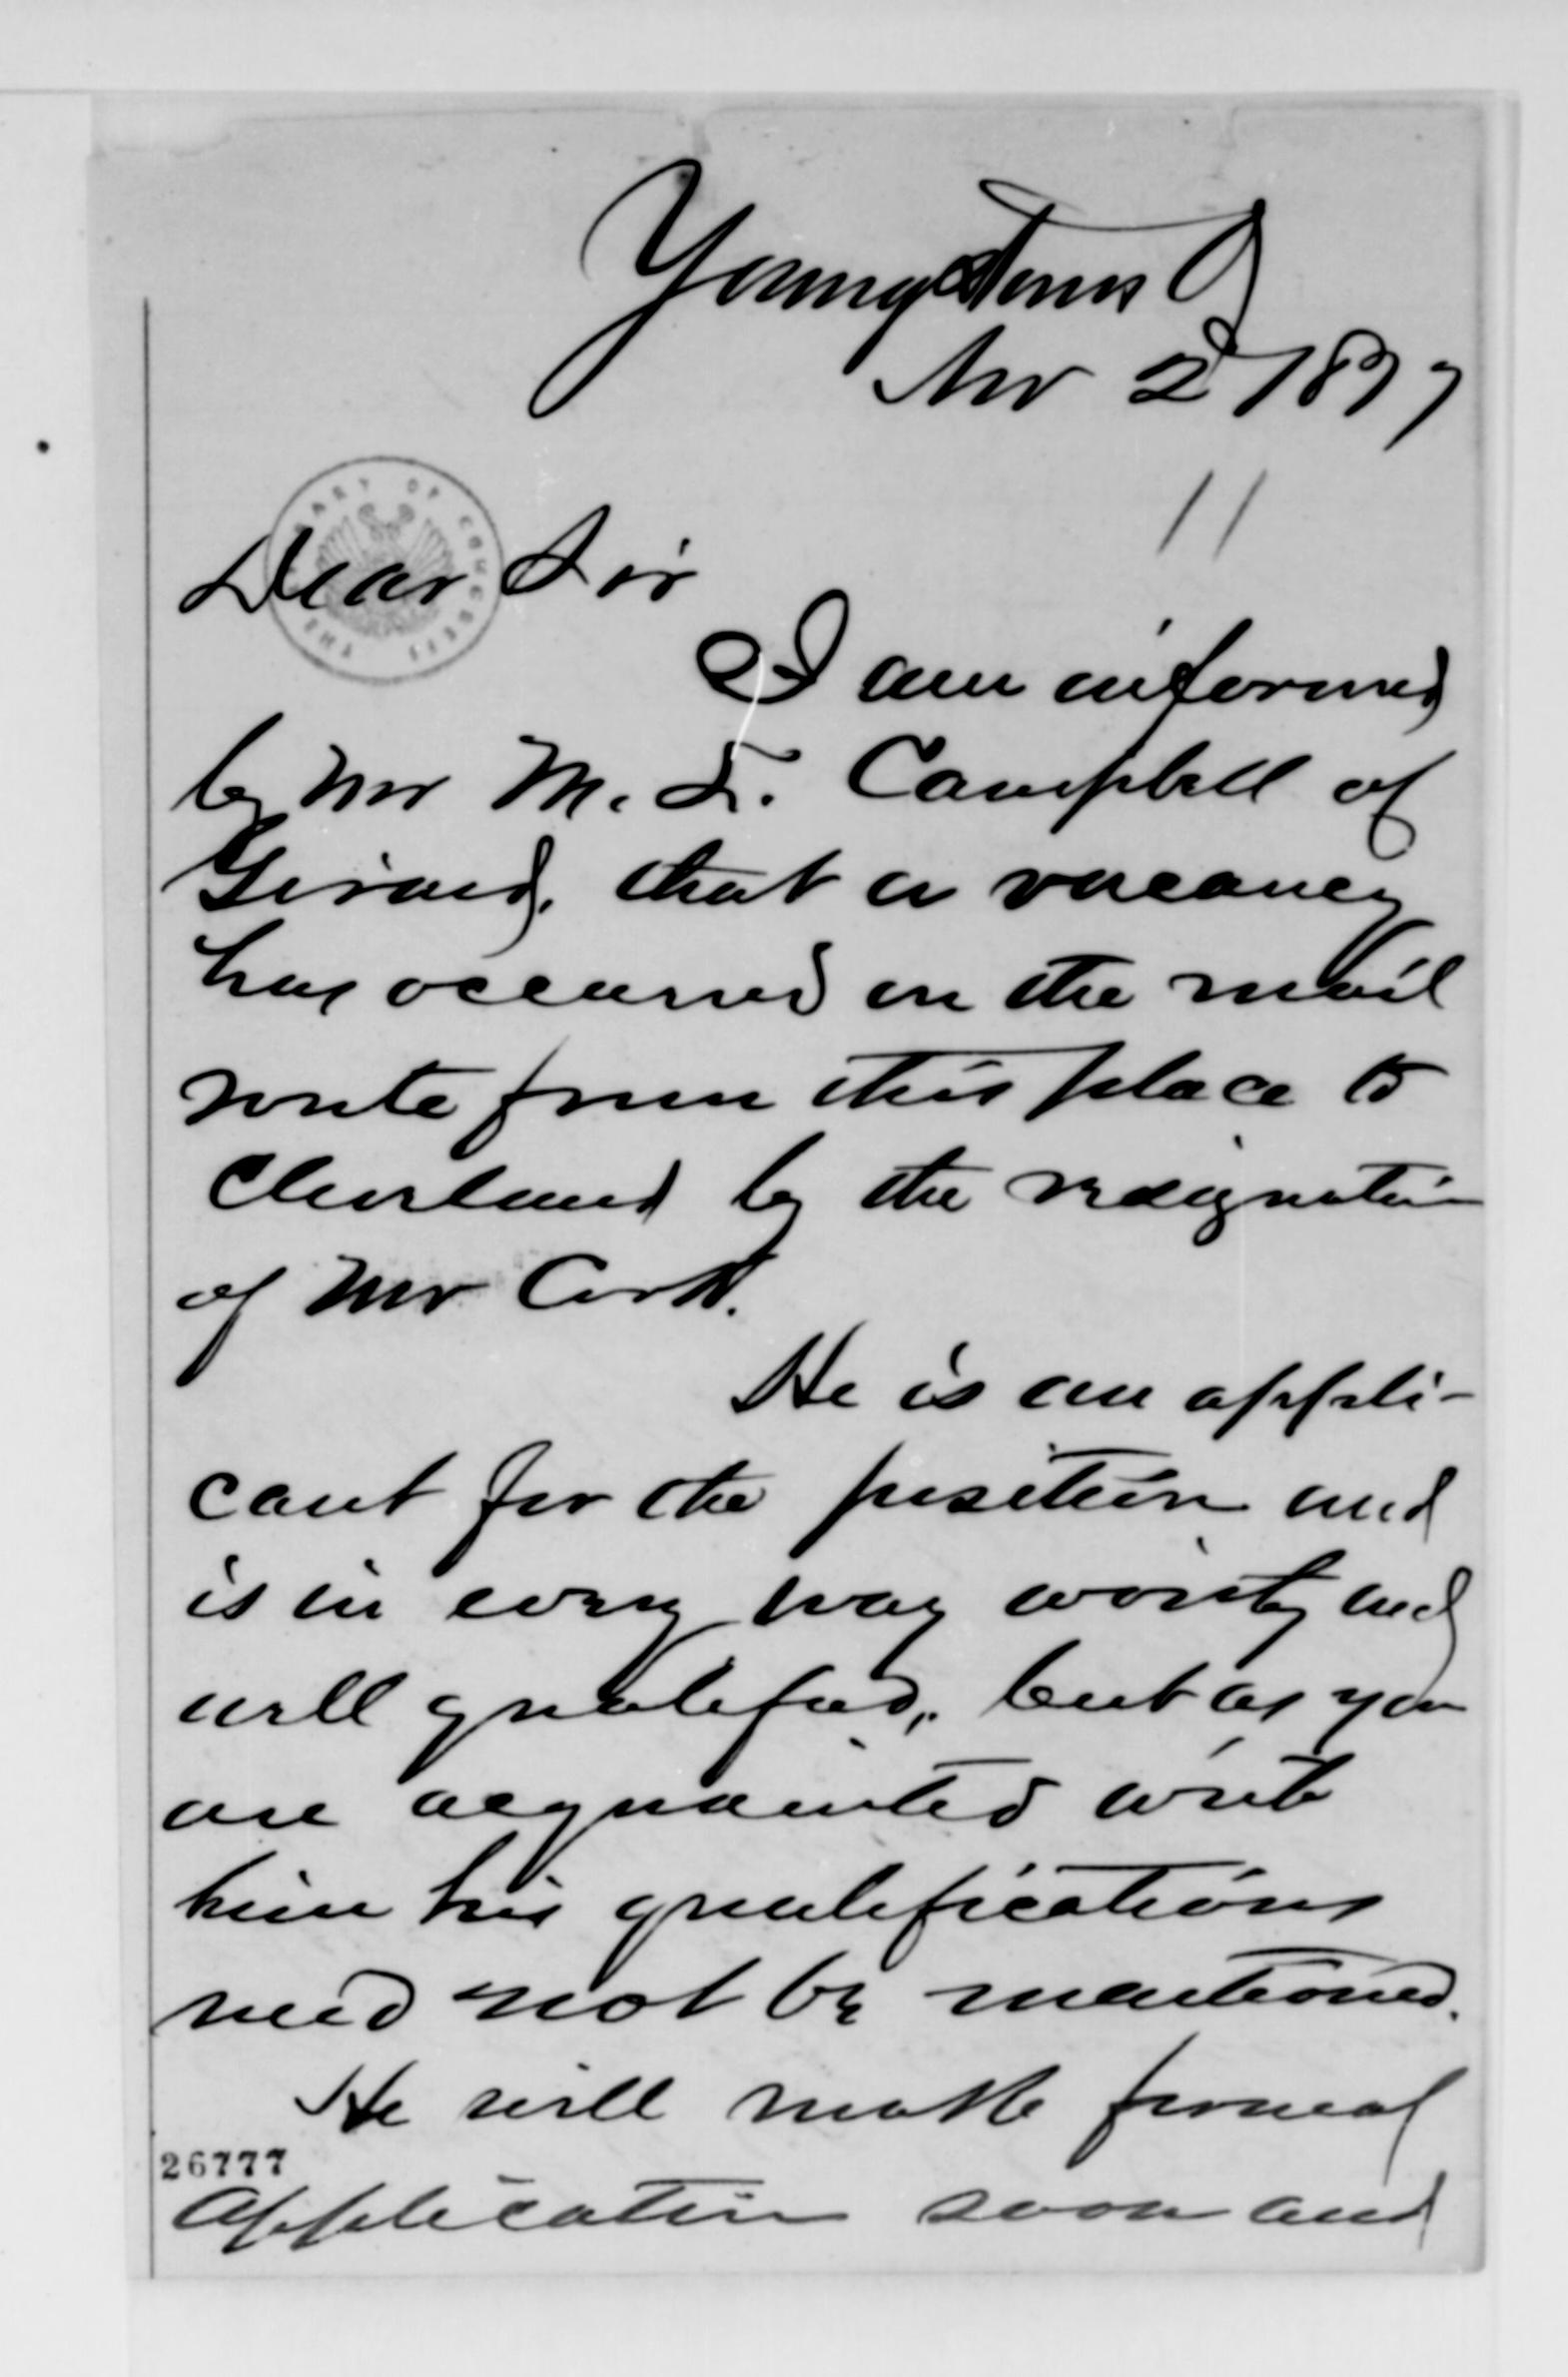 Youngstown O
Nov 2d 1877
11
Dear Sir
THE LIBRARY OF CONGRESS
I am informed
by Mr M. Campbell of
Girard, that a vacancy
has occurred on the mail
route from this place to
Cleveland by the resignation
of Mr
He is an appli-
cant for the position and
is in every way worthy and
well qualified, but as you
are acquainted with
him his qualifications
need not be mentioned.
He will make formal
26777
application soon and